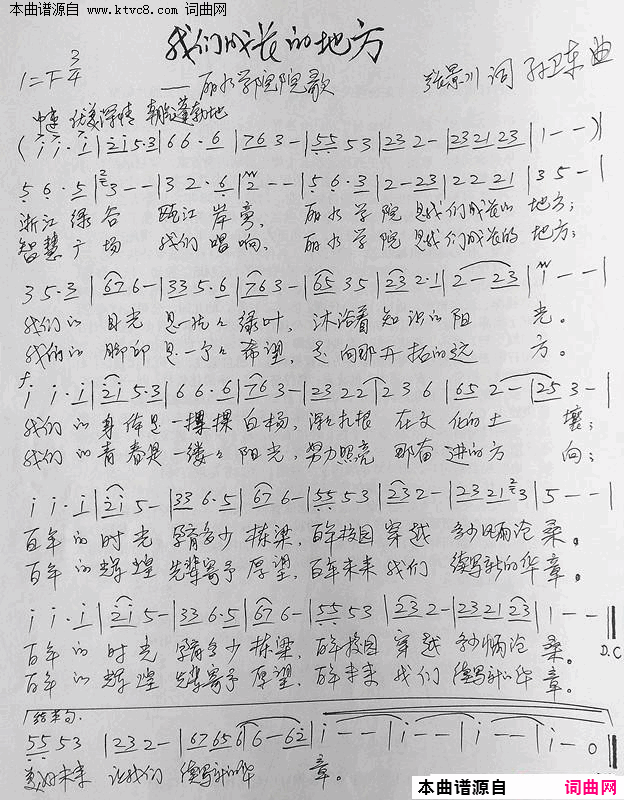 本曲谱源自 www.ktvc8.com 词曲网
我们成长的地方
1=F 3/4
——丽水学院院歌
张景川 词 孙卫东 曲
中速 优美深情 朝气蓬勃地
(i i· i | 2i 5·3 | 6 6· 6 | 76 3 - | 55 53 | 23 2 - | 23 21 23 | 1 - - ) |
5 6· 5 | 3 - - | 3 2· 6 | 2 - - | 5 6· 3 | 2 - 23 | 22 21 | 3 5 - |
浙江绿谷 瓯江岸旁, 丽水学院 是我们成长的 地方;
智慧广场 我们唱响, 丽水学院 是我们成长的 地方;
3 5· 3 | 67 6 - | 33 5·6 | 76 3 - | 65 35 | 23 2·1 | 2 - 23 | i - - |
我们的 目光 是一片片 绿叶, 沐浴着 知识的 阳 光。
我们的 脚印 是一个个 希望, 走向那 开拓的 远 方。
f
i i· i | 2i 5·3 | 6 6· 6 | 76 3 - | 23 22 | 2 3 6 | 65 2 - | 25 3 - |
我们的 身体是 一棵棵 白杨, 深深扎根 在文化的土 壤;
我们的 青春是 一缕缕 阳光, 努力照亮 那奋进的方 向;
i i· i | 2i 5 - | 33 6·5 | 67 6 - | 55 53 | 23 2 - | 23 21 3 | 5 - - |
百年的 时光 孕育多少 栋梁, 百年校园 穿越 多少风雨沧 桑。
百年的 辉煌 先辈寄予 厚望, 百年未来 我们 续写新的华 章。
i i· i | 2i 5 - | 33 6·5 | 67 6 - | 55 53 | 23 2 - | 23 21 23 | 1 - - ‖
D.C
百年的 时光 孕育多少 栋梁, 百年校园 穿越 多少风雨沧 桑。
百年的 辉煌 先辈寄予 厚望, 百年未来 我们 续写新的华 章。
结束句.
55 53 | 23 2 - | 67 65 6 | 6 - 6i | i - - | i - - | i - - | i - 0 ‖
美好未来 让我们 续写新的华 章。
本曲谱源自 词曲网